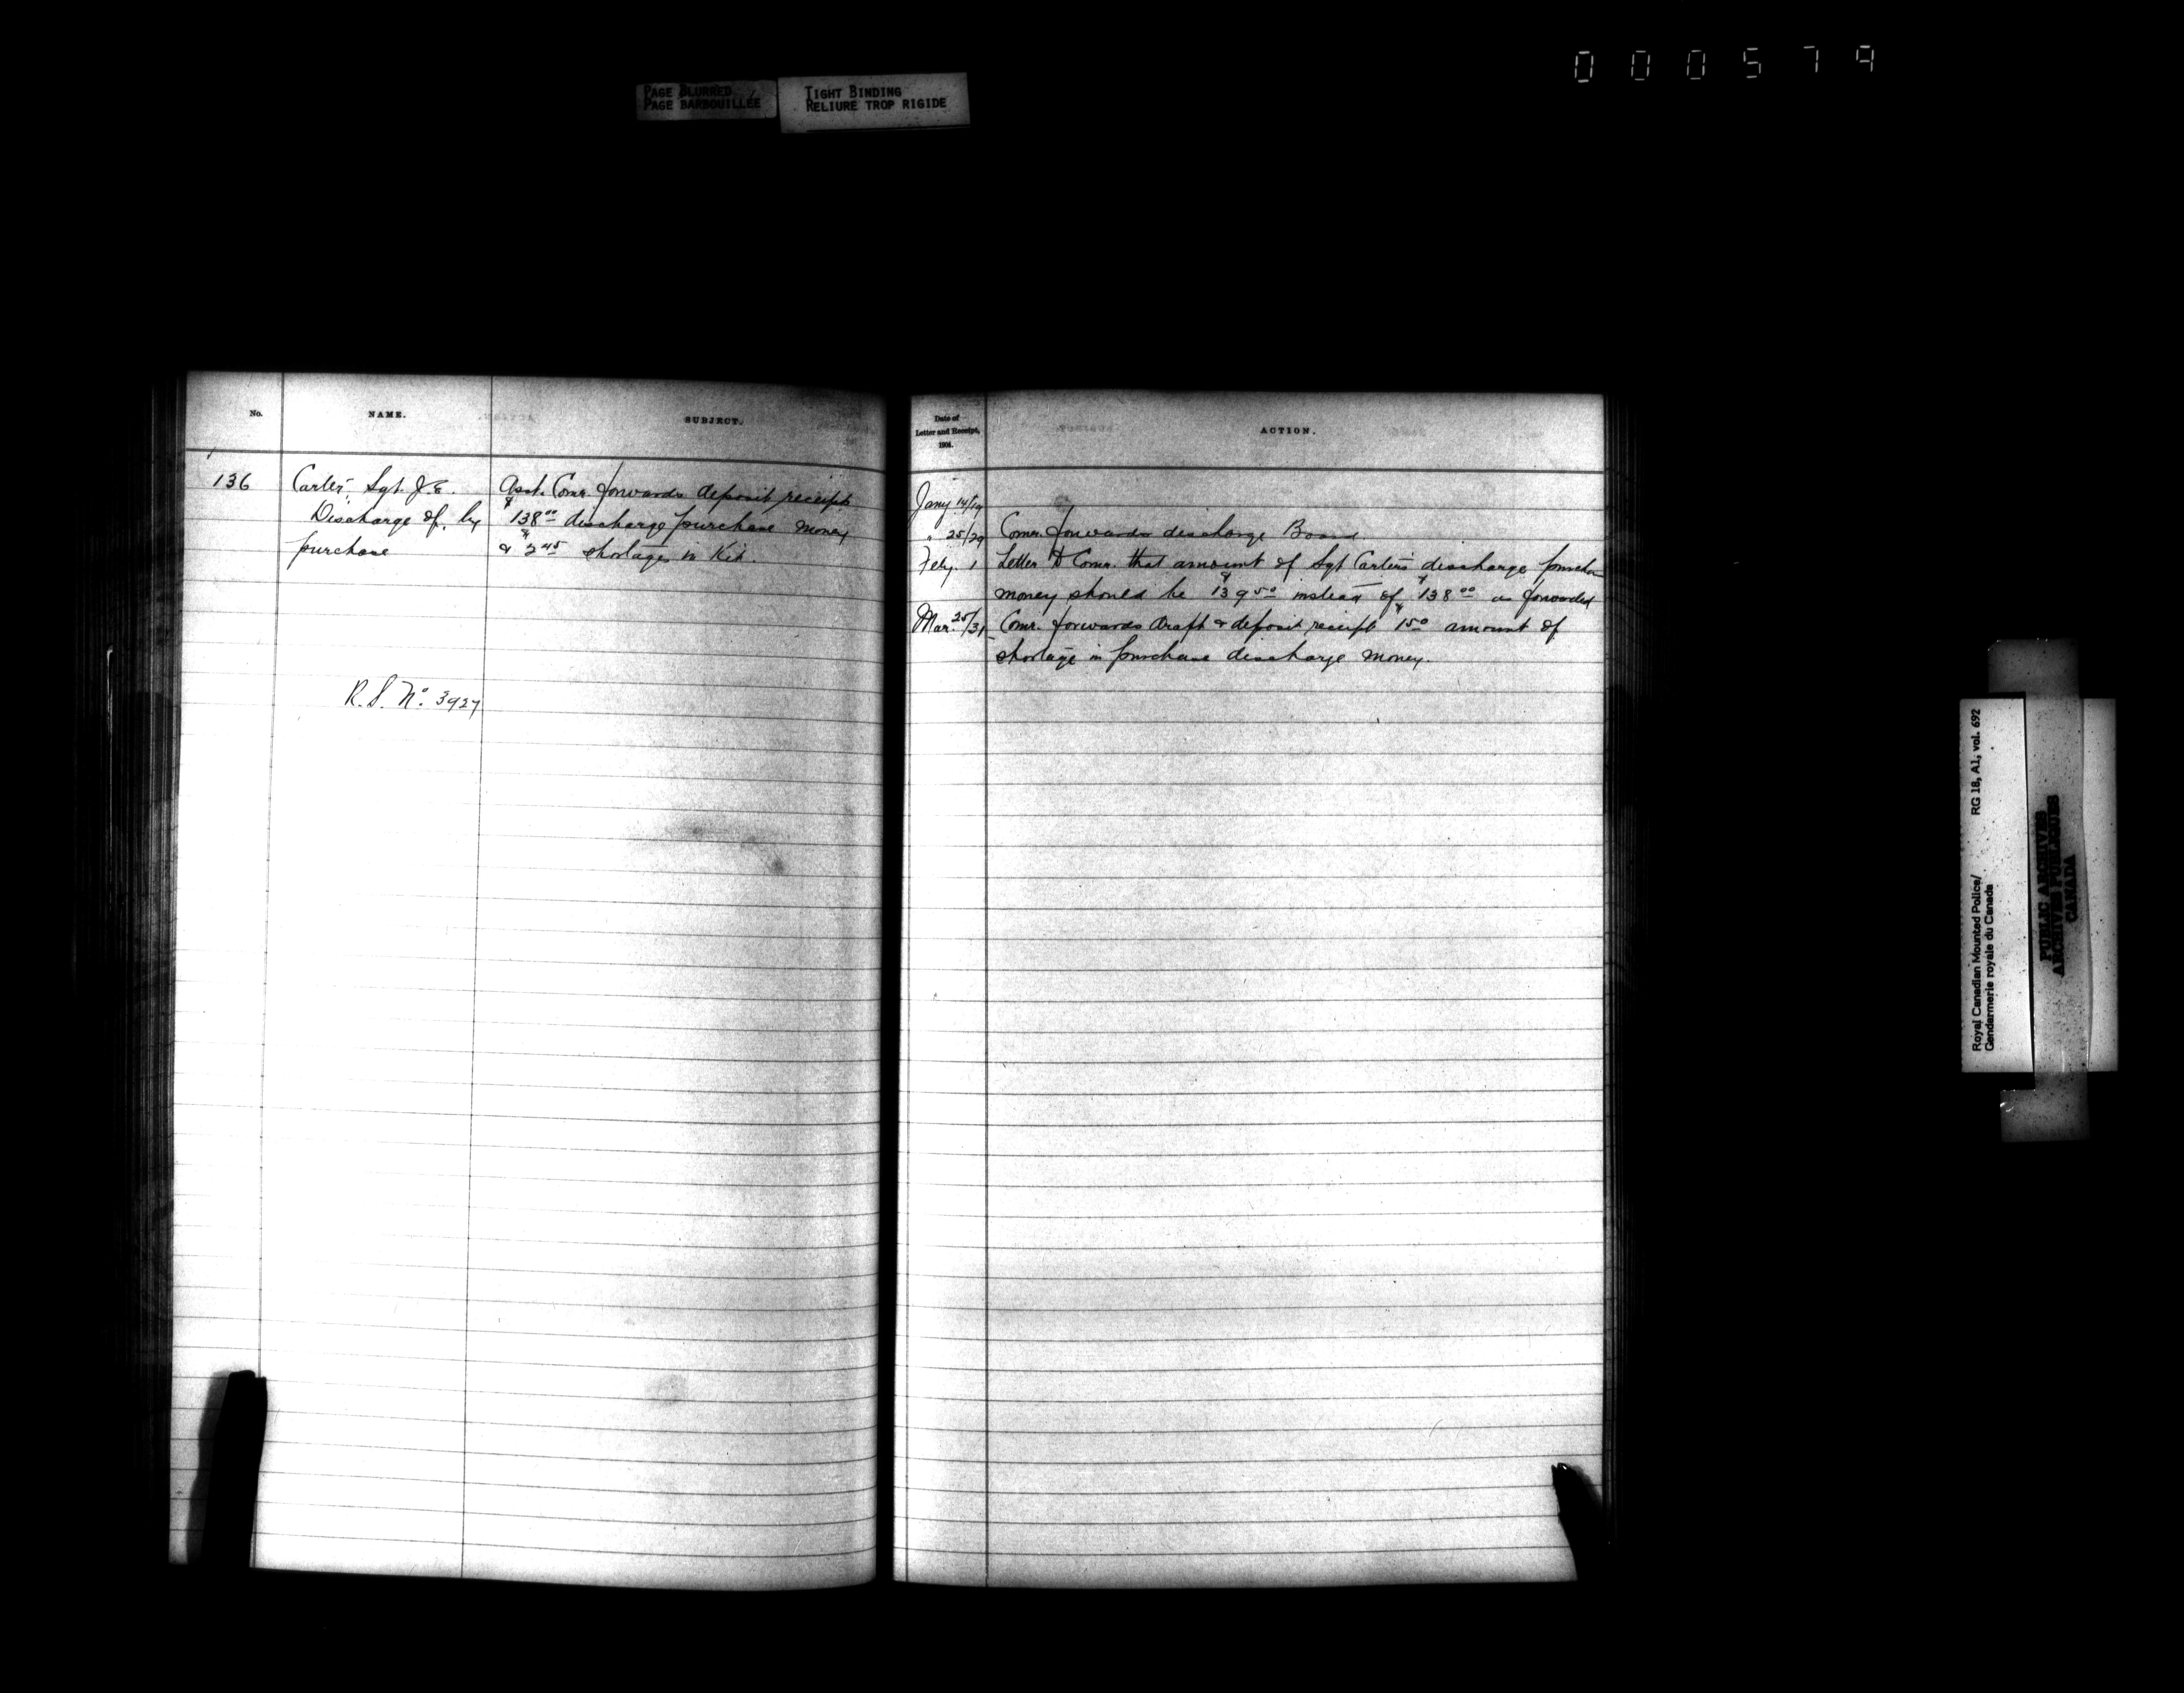 000579
PAGE BLURRED
PAGE BARBOUILLÉE
TIGHT BINDING
RELIURE TROP RIGIDE
No.
NAME.
SUBJECT.
136
Carter, Sgt. J.E.
Discharge of, by
purchase
R.S. No. 3927
Asst. Comr. forwards deposit receipts
$138.00 discharge purchase money
& $2.45 shortages in Kit.
Date of
Letter and Receipt,
1904.
ACTION.
Jany 14/19
" 25/29 Comr. forwards discharge Board.
Feby. 1 Letter to Comr. that amount of Sgt Carter's discharge purchase
money should be $139.50 instead of $138.00 as forwarded
Mar. 25/31 Comr. forwards draft & deposit receipt $1.50 amount of
shortage in purchase discharge money.
Royal Canadian Mounted Police/ RG 18, A1, vol. 692
Gendarmerie royale du Canada
PUBLIC ARCHIVES
ARCHIVES PUBLIQUES
CANADA